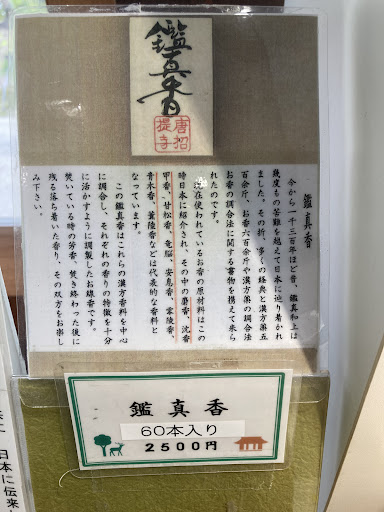 鑑真香
唐招
提寺
鑑真香
今から一千三百年ほど昔、鑑真和上は
幾度もの苦難を越えて日本に辿り着かれ
ました。その折、多くの経典と漢方薬五
百余斤、お香六百余斤や漢方薬の調合法
お香の調合法に関する書物を携えて来ら
れたのです。
現在使われているお香の原材料はこの
時日本に紹介され、その中の麝香、沈香
甲香、甘松香、竜脳、安息香、零陵香
青木香、薫陸香などは代表的な香料と
なっています。
この鑑真香はこれらの漢方香料を中心
に調合し、それぞれの香りの特徴を十分
に活かすように調製したお線香です。
焚いている時の芳香、焚き終わった後に
残る落ち着いた香り、その双方をお楽し
み下さい。
鑑真香
60本入り
2500円
日本に伝来